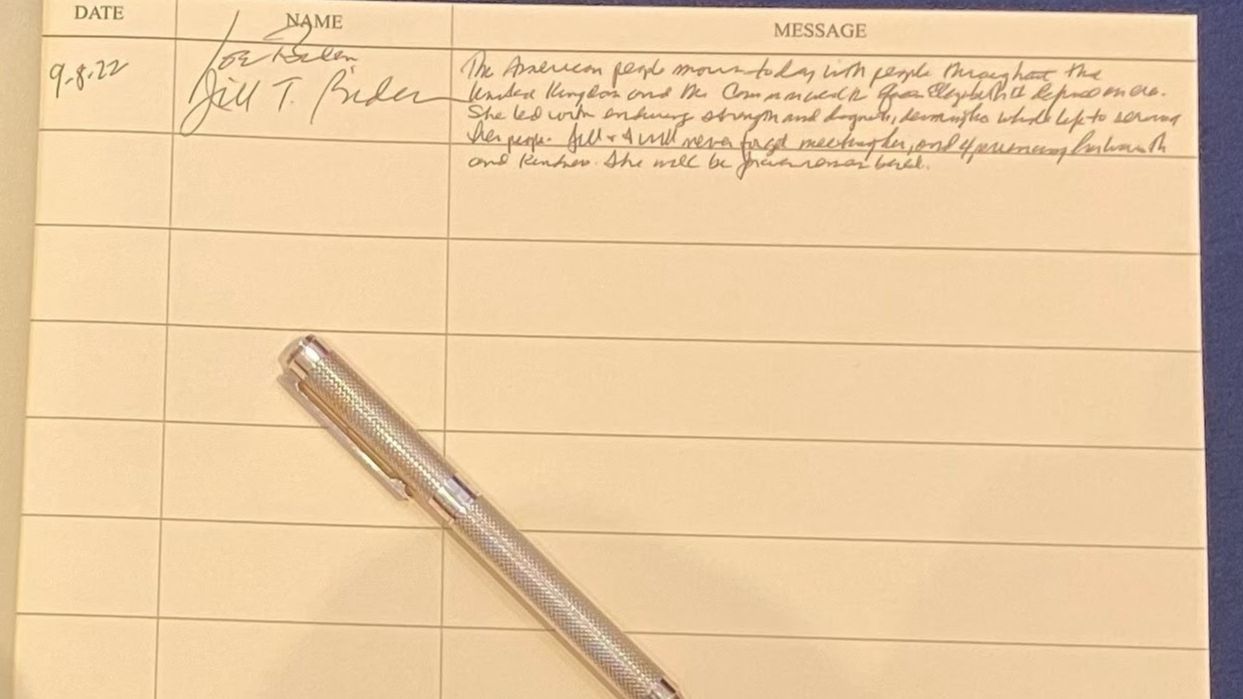 DATE
NAME
MESSAGE
9.8.22
Joe Biden
Jill T. Biden
The American people mourn today with people throughout the
United Kingdom and the Commonwealth. Queen Elizabeth II defined an era.
She led with enduring strength and dignity, devoting her whole life to serving
her people. Jill & I will never forget meeting her, and experiencing her warmth
and kindness. She will be forever remembered.